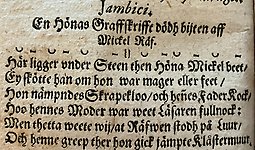 Jambici.
En Hönas Graffskriffe dödh bijten aff
Mickel Räf.
Här ligger vnder Steen then Höna Mickel beet/
Ey skötte han om hon war mager eller feet/
Hon nämpndes Skrapekloo/ och heñes Fader Kock/
Hoo hennes Moder war weet Läsaren fullnock:
Men thetta weete wij/ at Räfwen stodh på Luur/
Och henne greep ther hon gick jämpte Klästermuur.